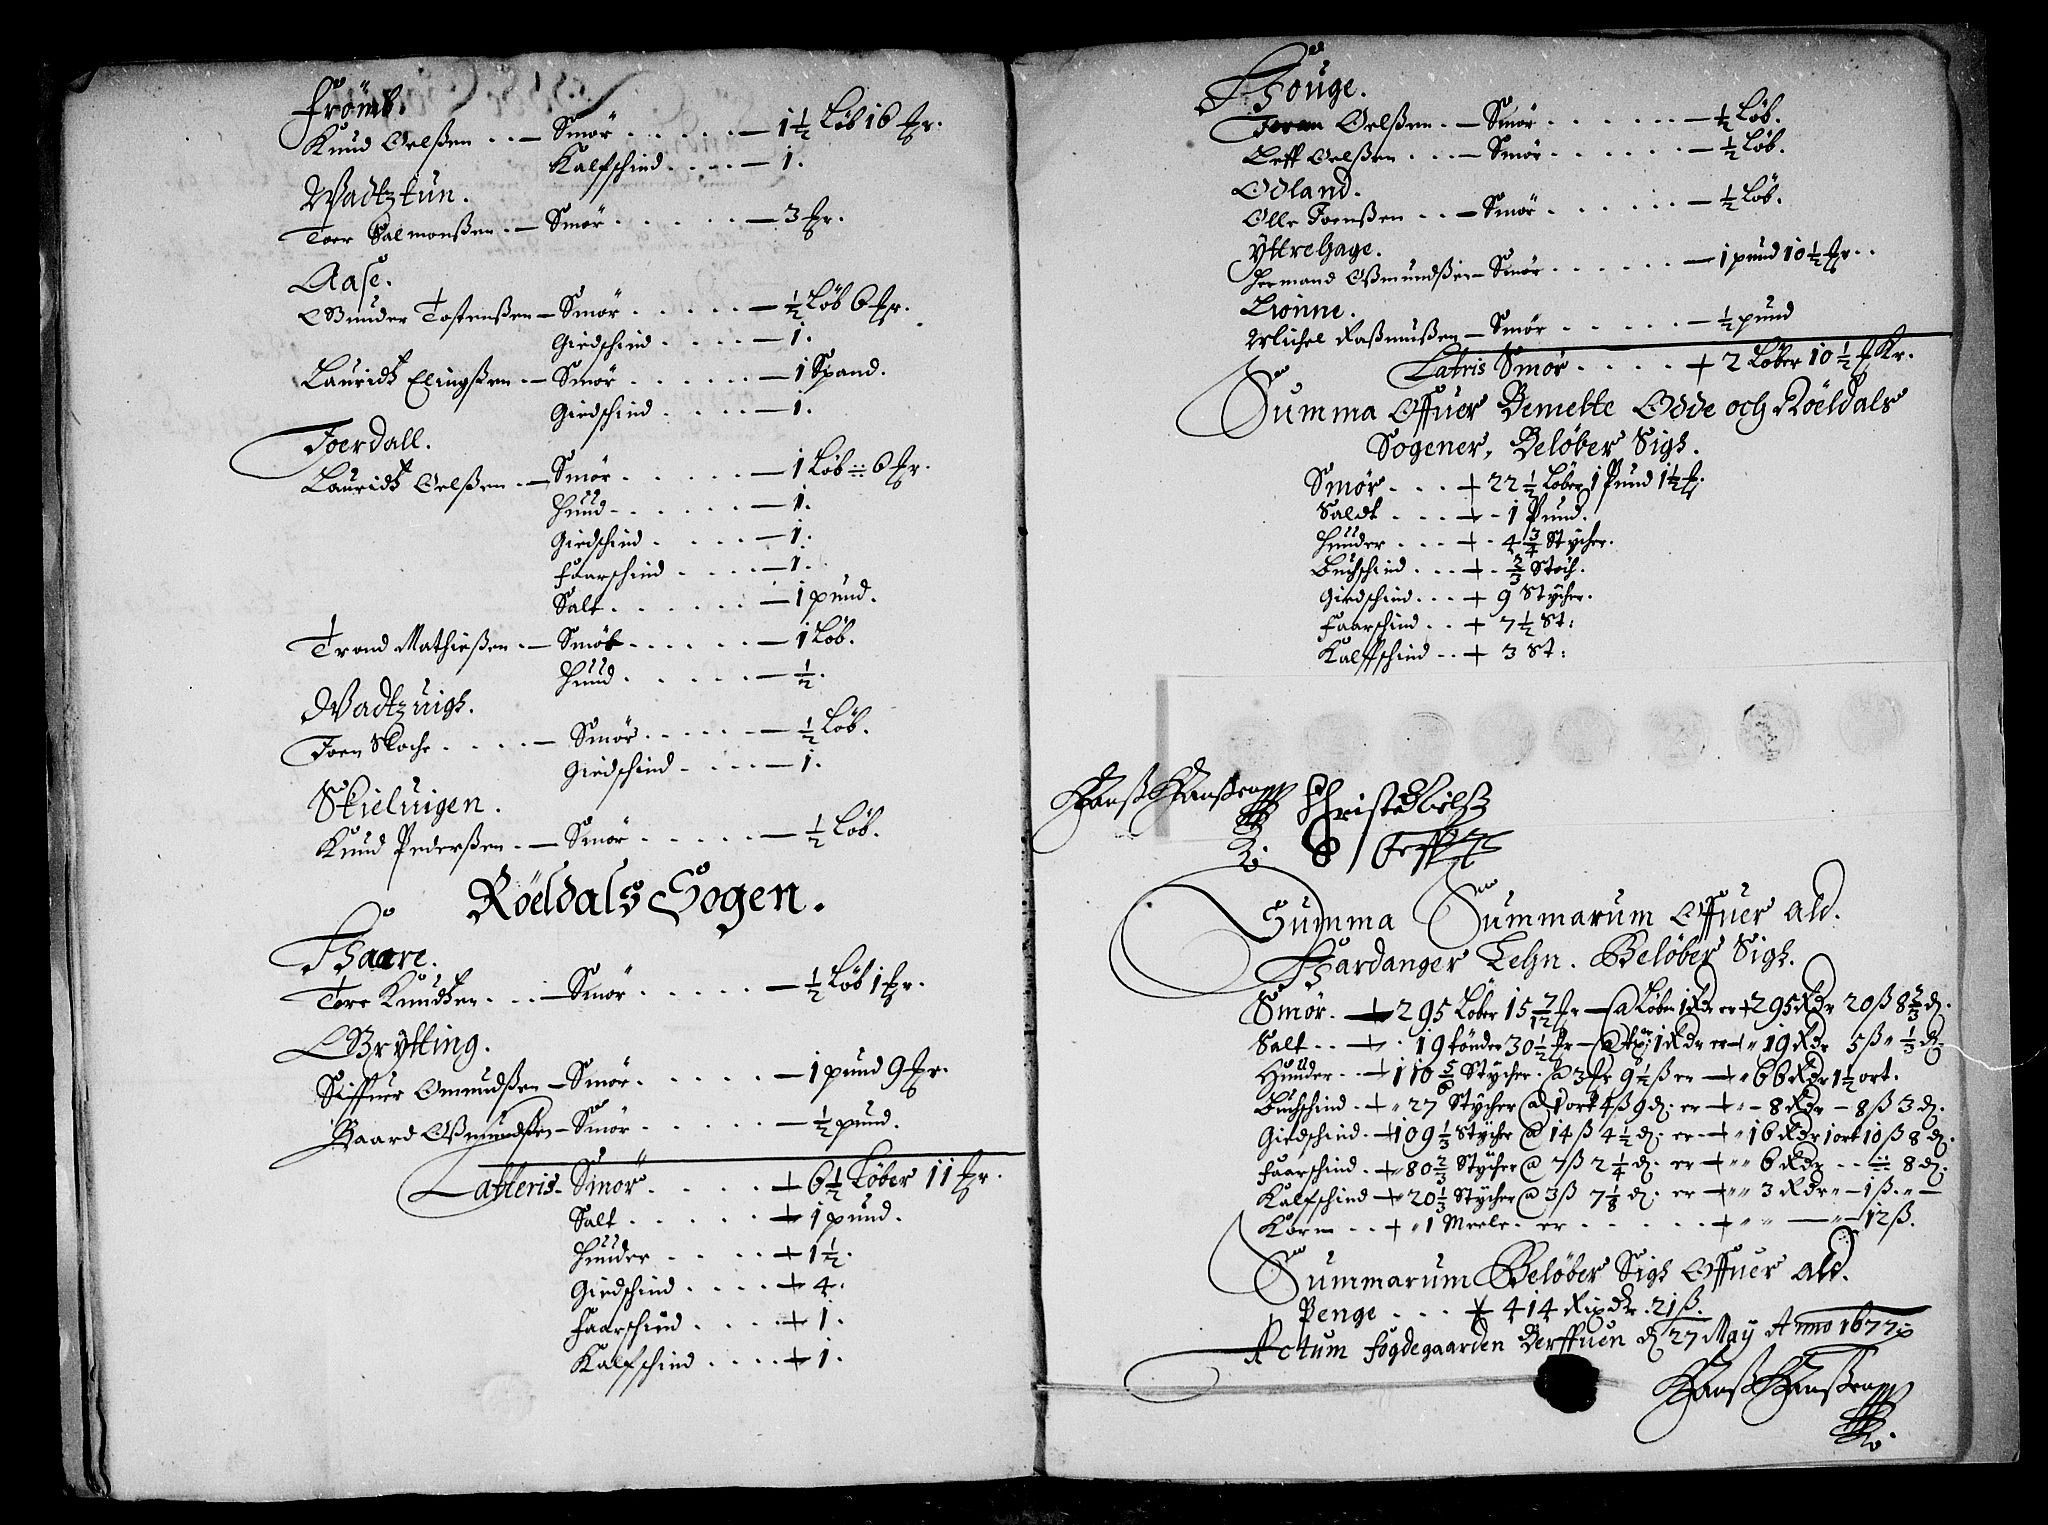 Frömb.
Knud Oelßen - Smör - 1½ Löb 16 ℔r.
Kalfschind - 1.
Wadtztun.
Toer Salmonßen - Smör - 3 ℔r.
Aase.
Gunder Tostenßen - Smör - ½ Löb 6 ℔r.
Giedschind - 1.
Lauridtz Elingßen - Smör - 1 Spand.
Giedschind - 1.
Joerdall.
Lauridtz Oelßen - Smör - 1 Löb 6 ℔r.
Huud - 1.
Giedschind - 1.
Faarschind - 1.
Salt - 1 pund.
Trond Mathießen - Smör - 1 Löb.
Huud - ½.
Wadtzuigh.
Joen - Smör - ½ Löb.
Giedschind - 1.
Skieluigen.
Knud Pederßen - Smör - ½ Löb.
Röeldals Sogen.
Haare.
Tore Knudtzen - Smör - ½ Löb 1 ℔r.
Grytting.
Siffuer Omundßen - Smör - 1 pund 9 ℔r.
Baard Oßmundßen - Smör - ½ pund.
Latteris - Smör - 6½ Löber 11 ℔r.
Salt - 1 pund.
Huuder - 1½.
Giedschind - 4.
Faarschind - 1.
Kalfschind - 1.
Houge.
Oelßen - Smör - ½ Löb.
Leff Oelßen - Smör - ½ Löb.
Odland.
Olle Joenßen - Smör - ½ Löb.
Yttrehage.
Hermand Oßmundßen - Smör - 1 pund 10½ ℔r.
Lionne.
Michel Raßmußen - Smör - ½ pund
Latris Smör - 2 Löber 10½ ℔r.
Summa Offuer Bemelte Odde och Röeldals
Sogener, Belöber Sigh.
Smör - 22½ Löber 1 Pund 1½ ℔.
Saldt - 1 Pund.
Huuder - 4¾ Stycher.
Buchschind - ⅔ Stöch.
Giedschind - 9 Stycher.
Faarschind - 7½ St:
Kalffschind - 3 St:
Hanß Hanßen
Summa Summarum Offuer ald.
Hardanger Lehn. Belöber Sigh.
Smör - 295 Löber 15 7/12 ℔r - @ Löben 1 Rdr er 295 Rdr 20 ß 8⅔ d.
Salt - 19 tönder 30½ ℔r - @ 1 Rdr er 19 Rdr 5 ß ⅓ d.
Huuder - 110 5/6 Stycher @ 3 ℔r 9½ ß er 66 Rdr 1½ ort.
Buchschind - 27 Stycher @ 1 ort 4 ß 9 d. er - 8 Rdr - 8 ß 3 d.
Giedschind - 109⅓ Stycher @ 14 ß 4½ d. er 16 Rdr 1 ort 10 ß 8 d.
Faarschind - 80⅔ Stycher @ 7 ß 2¼ d. er 6 Rdr 8 d.
Kalfschind - 20⅓ Stycher @ 3 ß 7⅛ d. er 3 Rdr - 1 ß.
Korn - 1 Meele er - 12 ß.
Summarum Belöber Sigh Offuer ald.
Penge - 414 Rixdr. 21 ß.
Actum fogdegaarden Derffuen d 27 May Anno 1677
Hanß Hanßen